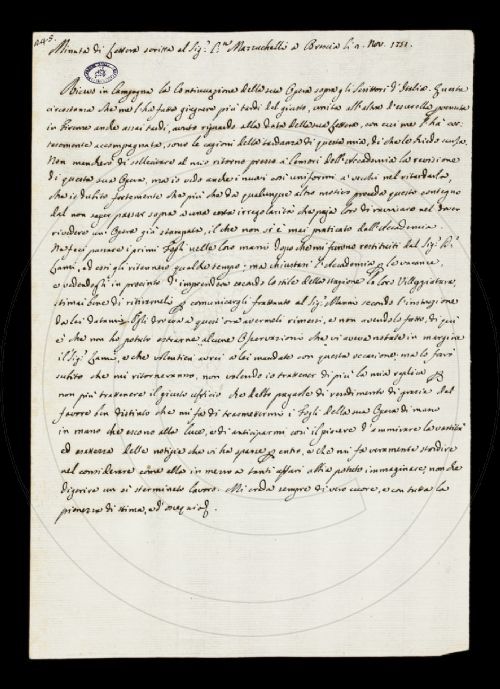 Minuta di lettera scritta al Sig.r C.te Mazzuchelli a Brescia li 2. Nov. 1751.
Ricevo in Campagna la Continuazione della sua Opera sopra gli Scrittori d'Italia. Questa
circostanza che me l'ha fatta giugnere più tardi del giusto, unita all'altra d'esserella pervenuta
in Firenze anche assai tardi, avuto riguardo alla data della sua lettera, con cui me l'ha cor-
tesemente accompagnata, sono le cagioni della tardanza di questa mia, di che le chiedo scusa.
Non mancherò di sollecitare al mio ritorno presso i Censori dell'Accademia la revisione
di questa sua Opera, ma io vedo anche i nuovi così uniformi a' vecchi nel ritardarla,
che io dubito fortemente che più che da qualunque altro motivo proceda questo contegno
dal non saper passar sopra a una certa irregolarità che paja loro di ravvisare nel dover
rivedere un'Opera già stampata, il che non si è mai praticato dall'Accademia.
Ne feci passare i primi fogli nelle loro mani dopo che mi furono restituiti dal Sig.r D.r
Lami, ed essi gli ritennero qualche tempo; ma chiustasi l'Accademia p le vacanze,
e vedendogli in procinto d'imprendere secondo lo stile della stagione la loro Villeggiatura,
stimai bene di ritirarli p comunicargli frattanto al Sig.r Manni secondo l'instruzione
da lei datami. Egli doveva a quest'ora avermeli rimessi, e non avendolo fatto, di qui
è che non ho potuto estrarne alcune Osservazioni che vi aveva notate in margine
il Sig.r Lami, e che volentieri avrei a lei mandato con questa occasione, ma lo farò
subito che mi ritorneranno, non volendo io trattener di più la mia replica p
non più trattenere il giusto uffizio che debbo pagarle di rendimento di grazie del
favore sin distinto che mi fa di trasmettermi i fogli della sua Opera di mano
in mano che escono alla luce, e di anticiparmi così il piacere d'ammirare la vastità
ed esattezza delle notizie che vi ha sparse p entro, e che mi fa veramente stordire
nel considerare come ella in mezzo a tanti affari abbia potuto immaginare, non che
digerire un sì sterminato lavoro. Mi creda sempre di vero cuore, e con tutta la
pienezza di stima, e d'ossequio